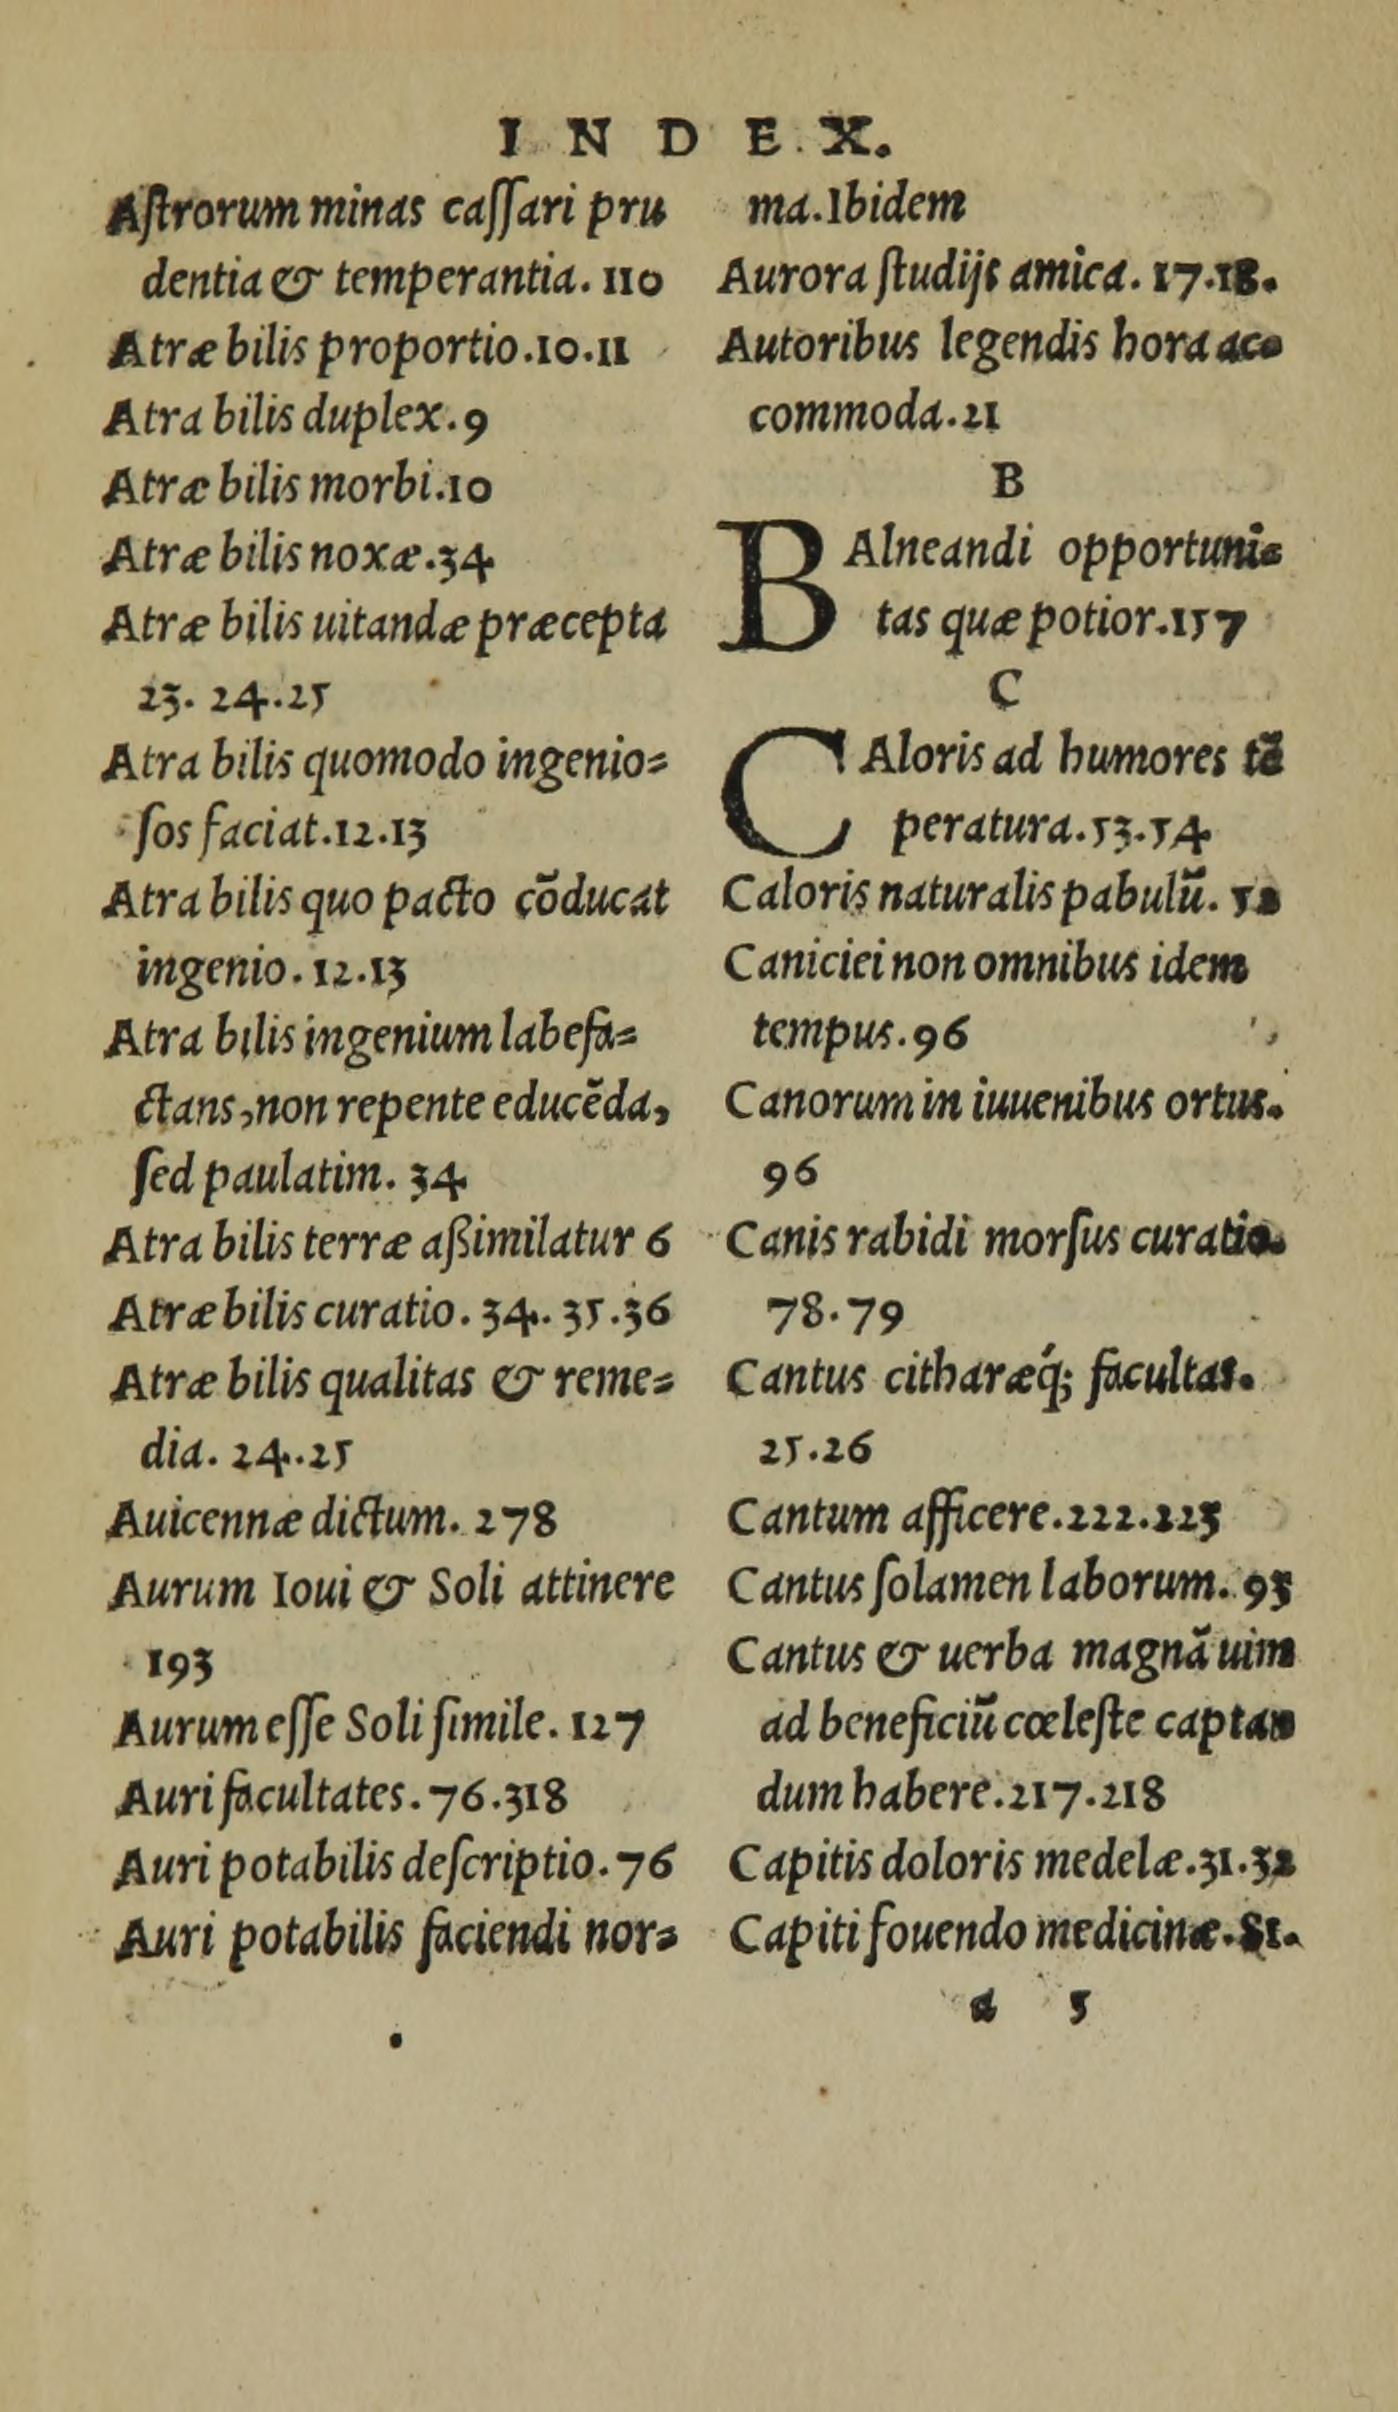 INDEX.
Aſtrorum minas caſſari pru
dentia & temperantia. 110
Atræ bilis proportio.10.11
Atra bilis duplex.9
Atræ bilis morbi.10
Atræ bilis noxæ.34
Atræ bilis uitandæ præcepta
23. 24.25
Atra bilis quomodo ingenio=
ſos faciat.12.13
Atra bilis quo pacto cõducat
ingenio. 12.13
Atra bilis ingenium labefa=
ctans, non repente educẽda,
ſed paulatim. 34
Atra bilis terræ aßimilatur 6
Atræ bilis curatio. 34. 35.36
Atræ bilis qualitas & reme=
dia. 24.25
Auicennæ dictum. 278
Aurum Ioui & Soli attinere
193
Aurum eſſe Soli ſimile. 127
Auri facultates. 76.318
Auri potabilis deſcriptio. 76
Auri potabilis faciendi nor=
ma. Ibidem
Aurora ſtudijs amica. 17.18.
Autoribus legendis hora ac=
commoda.21
B
BAlneandi opportuni=
tas quæ potior.157
C
CAloris ad humores tẽ
peratura.53.54
Caloris naturalis pabulũ. 52
Caniciei non omnibus idem
tempus.96
Canorum in iuuenibus ortus.
96
Canis rabidi morſus curatio.
78.79
Cantus citharæq́; facultas.
25.26
Cantum afficere.222.223
Cantus ſolamen laborum. 93
Cantus & uerba magnã uim
ad beneficiũ cœleſte captan
dum habere.217.218
Capitis doloris medelæ.31.32
Capiti fouendo medicinæ.81.
a 5